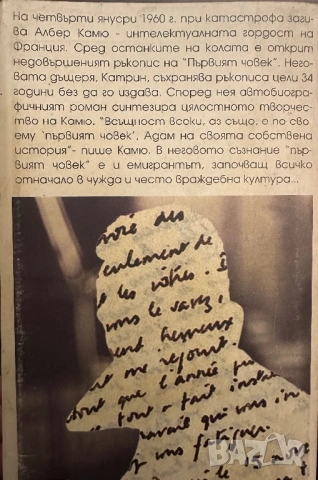 На четвърти януари 1960 г. при катастрофа заги-
ва Албер Камю - интелектуалната гордост на
Франция. Сред останките на колата е открит
недовършеният ръкопис на "Първият човек". Не-
говата дъщеря, Катрин, съхранява ръкописа цели 34
години без да го издава. Според нея автобиогра-
фичният роман синтезира цялостното творчес-
тво на Камю. "Всъщност всоки, аз също, е по сво
ему 'първият човек', Адам на своята собствена
история"- пише Камю. В неговото съзнание "пър-
вият човек" е и емигрантът, започващ всичко
отначало в чужда и често враждебна култура...
des
les vôtres. I
ms le savez,
me rejouit.
que l'année
tout - fait
travail qui vous
fatiguer.
le 15 nov
БАЗАР
bg